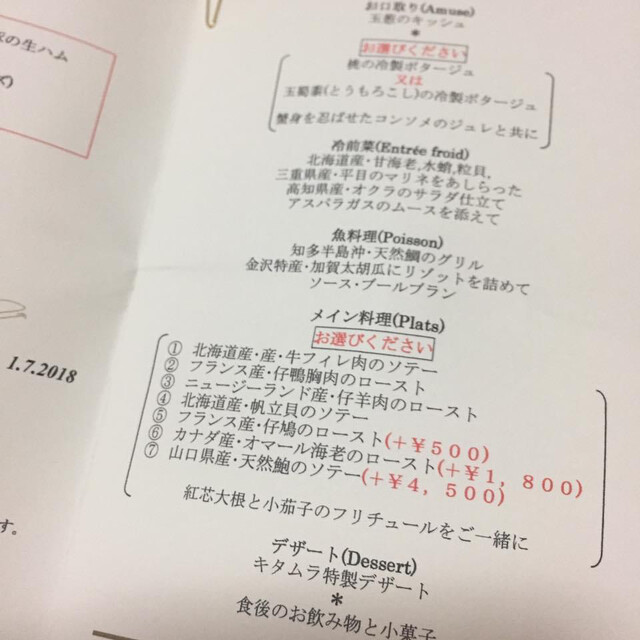 の生ハム
1.7.2018
す。
お口取り(Amuse)
玉葱のキッシュ
*
お選びください
桃の冷製ポタージュ
又は
玉蜀黍(とうもろこし)の冷製ポタージュ
蟹身を忍ばせたコンソメのジュレと共に
冷前菜(Entrée froid)
北海道産・甘海老,水蛸,粒貝,
三重県産・平目のマリネをあしらった
高知県産・オクラのサラダ仕立て
アスパラガスのムースを添えて
魚料理(Poisson)
知多半島沖・天然鯛のグリル
金沢特産・加賀太胡瓜にリゾットを詰めて
ソース・ブールブラン
メイン料理(Plats)
お選びください
① 北海道産・産・牛フィレ肉のソテー
② フランス産・仔鴨胸肉のロースト
③ ニュージーランド産・仔羊肉のロースト
④ 北海道産・帆立貝のソテー
⑤ フランス産・仔鳩のロースト(+￥500)
⑥ カナダ産・オマール海老のロースト(+￥1,800)
⑦ 山口県産・天然鮑のソテー(+￥4,500)
紅芯大根と小茄子のフリチュールをご一緒に
デザート(Dessert)
キタムラ特製デザート
*
食後のお飲み物と小菓子